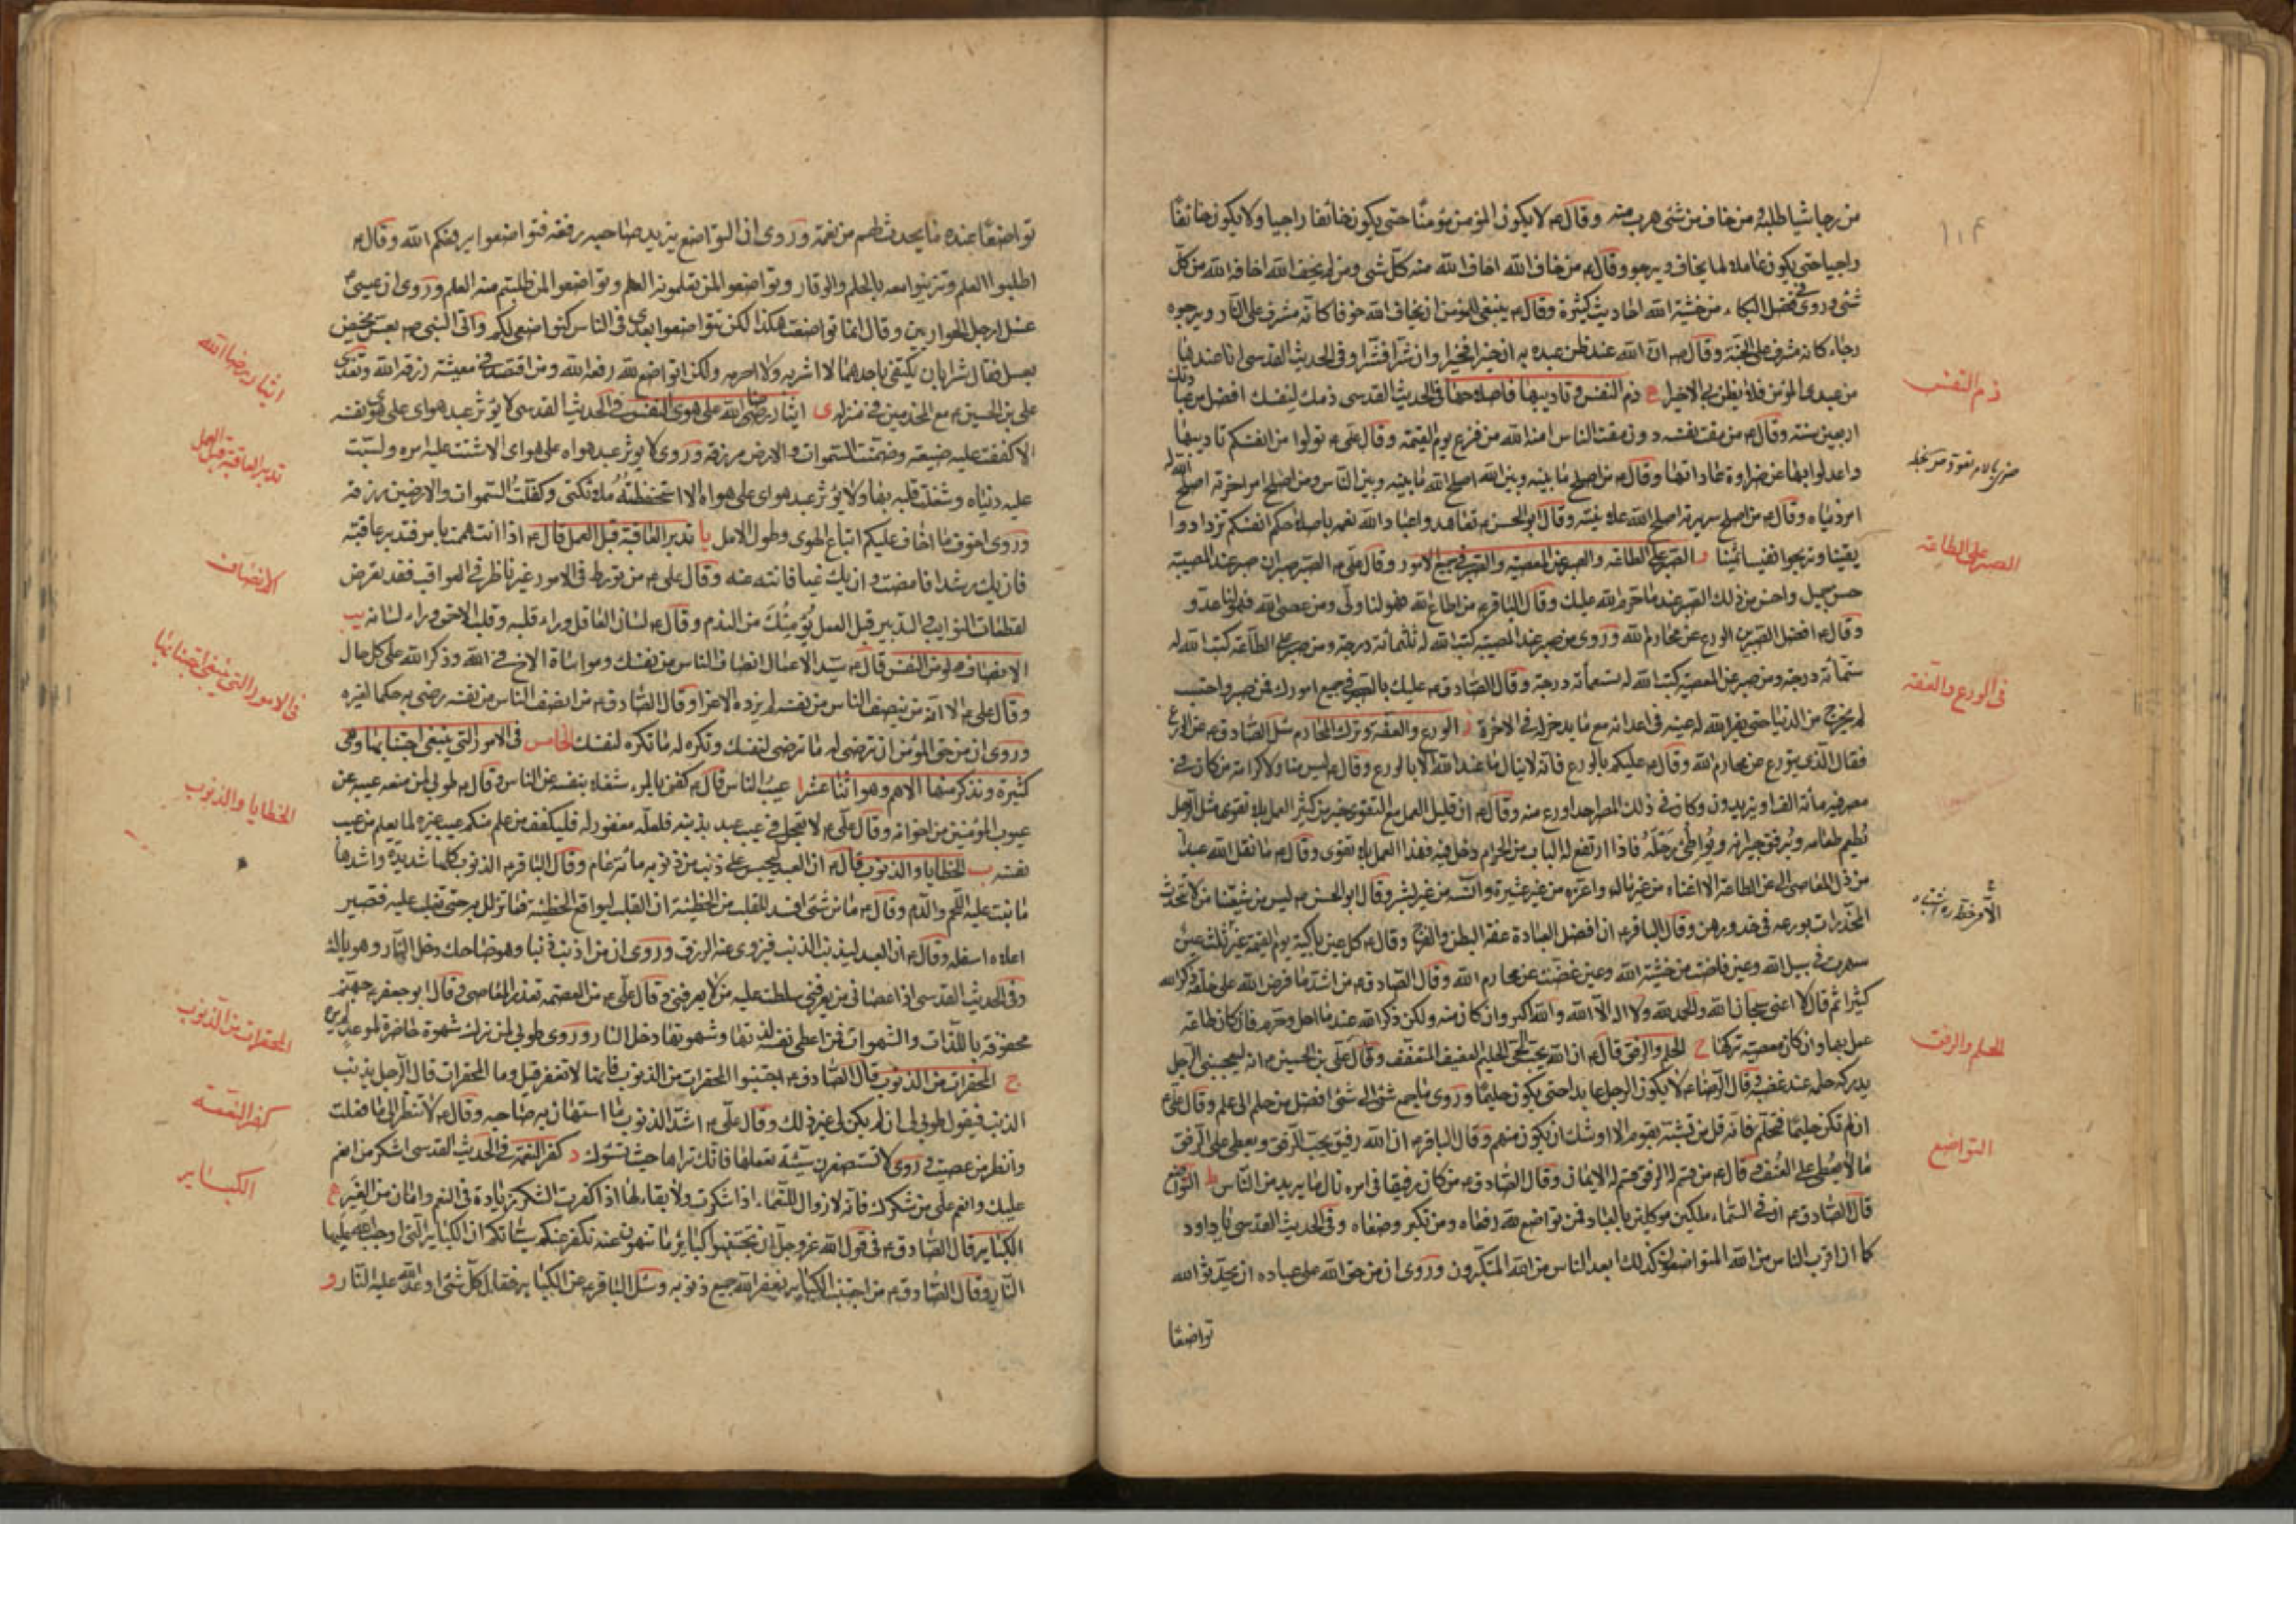 ١٠٤
من رجا شيا طلبه ومن خاف من شئ هرب منه وقال ع لا يكون المؤمن مؤمنا حتى يكون خائفا راجيا ولا يكون خائفا
راجيا حتى يكون عاملا لما يخاف ويرجو وقال ع من خاف الله اخاف الله منه كل شئ ومن لم يخف الله اخافه الله من كل
شئ وروى في فضل البكاء من خشية الله احاديث كثيرة وقال ع ينبغى للمؤمن ان يخاف الله خوفا كانه مشرف على النار ويرجوه
رجاء كانه مشرف على الجنة وقال ع ان الله عند ظن عبده به ان خيرا فخيرا وان شرا فشرا وفى الحديث القدسى انا عند ظن
من عبدى المؤمن فلا يظن بى الا خيرا ج ذم النفس وتاديبها فاصلاحها فى الحديث القدسى ذمك لنفسك افضل من عبادتك
اربعين سنة وقال ع من مقت نفسه دون مقت الناس امنه الله من فزع يوم القيمة وقال على ع تولوا من انفسكم تاديبها
واعدلوا بها عن ضراوة عاداتها وقال ع من اصلح ما بينه وبين الله اصلح الله ما بينه وبين الناس ومن اصلح امر اخرته اصلح الله له
امر دنياه وقال ع من اصلح سريرته اصلح الله علانيته وقال ابو الحسن ع تعاهدوا عباد الله نعمه باصلاحكم انفسكم تزدادوا
يقينا وتربحوا نفيسا ثمينا و الصبر على الطاعة والصبر عن المعصية والصبر فى جميع الامور وقال على ع الصبر صبران صبر عند المصيبة
حسن جميل واحسن من ذلك الصبر عند ما حرم الله عليك وقال الباقر ع من اطاع الله فهو لنا ولى ومن عصى الله فهو لنا عدو
وقال ع افضل الصبرين الورع عن محارم الله وروى من صبر عند المصيبة كتب الله له ثلثمائة درجة ومن صبر على الطاعة كتب الله له
ستمائة درجة ومن صبر عن المعصية كتب الله له تسعمائة درجة وقال الصادق ع عليك بالصبر فى جميع امورك فمن صبر واحتسب
لم يخرج من الدنيا حتى يقر الله له عينه فى اعدائه مع ما يدخر له فى الاخرة ز الورع والعفة وترك المحارم سئل الصادق ع عن الورع
فقال الذى يتورع عن محارم الله وقال ع عليكم بالورع فانه لا ينال ما عند الله الا بالورع وقال ع ليس منا ولا كرامة من كان فى
مصر فيه مائة الف او يزيدون وكان فى ذلك المصر احد اورع منه وقال ع ان قليل العمل مع التقوى خير من كثير العمل بلا تقوى مثل الرجل
يطعم طعامه ويرفق جيرانه ويواطئ رحله فاذا ارتفع له الباب من الحرام دخل فيه فهذا العمل بلا تقوى وقال ع ما نقل الله عبدا
من ذل المعاصى الى عز الطاعة الا اغناه من غير مال واعزه من غير عشيرة وآنسه من غير بشر وقال ابو الحسن ع ليس من شيعتنا من لا تحدث
المخدرات بورعه فى خدورهن وقال الباقر ع ان افضل العبادة عفة البطن والفرج وقال ع كل عين باكية يوم القيمة غير ثلث عين
سهرت فى سبيل الله وعين فاضت من خشية الله وعين غضت عن محارم الله وقال الصادق ع من اشد ما فرض الله على خلقه ذكر الله
كثيرا ثم قال لا اعنى سبحان الله والحمد لله ولا اله الا الله والله اكبر وان كان منه ولكن ذكر الله عند ما احل وحرم فان كان طاعة
عمل بها وان كان معصية تركها ح الحلم والرفق قال ع ان الله يحب الحيى الحليم العفيف المتعفف وقال على بن الحسين ع انه ليعجبنى الرجل
يدركه حلمه عند غضبه وقال الرضا ع لا يكون الرجل عابدا حتى يكون حليما وروى ما جمع شئ الى شئ افضل من حلم الى علم وقال على ع
ان لم تكن حليما فتحلم فانه قل من تشبه بقوم الا اوشك ان يكون منهم وقال الباقر ع ان الله رفيق يحب الرفق ويعطى على الرفق
ما لا يعطى على العنف وقال ع من قسم له الرفق قسم له الايمان وقال الصادق ع من كان رفيقا فى امره نال ما يريد من الناس ط التواضع
قال الصادق ع ان فى السماء ملكين موكلين بالعباد فمن تواضع لله رفعاه ومن تكبر وضعاه وفى الحديث القدسى يا داود
كما ان اقرب الناس من الله المتواضعون كذلك ابعد الناس من الله المتكبرون وروى ان من حق الله على عباده ان يحدثوا لله
تواضعا
ذم النفس
الصبر على الطاعة
فى الورع والعفة
الحلم والرفق
التواضع
تواضعا عند ما يحدث لهم من نعمة وروى ان التواضع يزيد صاحبه رفعة فتواضعوا يرفعكم الله وقال ع
اطلبوا العلم وتزينوا معه بالحلم والوقار وتواضعوا لمن تعلمونه العلم وتواضعوا لمن طلبتم منه العلم وروى ان عيسى ع
غسل ارجل الحواريين وقال انما تواضعت هكذا لكن تتواضعوا بعدى فى الناس كتواضعى لكم واتى النبى ص بعس مخيض
بعسل فقال شرابان يكتفى باحدهما لا اشربه ولا احرمه ولكن اتواضع لله رفعه الله ومن اقتصد فى معيشته رزقه الله وتغدى
على بن الحسين ع مع المجذمين فى منزله ى ايثار رضى الله على هوى النفس فى الحديث القدسى لا يؤثر عبد هواى على هوى نفسه
الا كففت عليه ضيعته وضمنت السموات والارض رزقه وروى لا يوثر عبد هواه على هواى الا شتت عليه امره ولبست
عليه دنياه وشغلت قلبه بها ولا يؤثر عبد هواى على هواه الا استحفظته ملائكتى وكفلت السموات والارضين رزقه
وروى اخوف ما اخاف عليكم اتباع الهوى وطول الامل يا تدبر العاقبة قبل العمل قال ع اذا انت هممت بامر فتدبر عاقبته
فان يك رشدا فامضه وان يك غيا فانته عنه وقال على ع من تورط فى الامور غير ناظر فى العواقب فقد تعرض
لمفظعات النوايب والتدبير قبل العمل يؤمنك من الندم وقال ع لسان العاقل وراء قلبه وقلب الاحمق وراء لسانه يب
الانصاف ولو من النفس قال ع سيد الاعمال انصاف الناس من نفسك ومواساة الاخ فى الله وذكر الله على كل حال
وقال على ع الا انه من ينصف الناس من نفسه لم يزده الا عزا وقال الصادق ع من انصف الناس من نفسه رضى به حكما لغيره
وروى ان من حق المؤمن ان ترضى له ما ترضى لنفسك وتكره له ما تكره لنفسك الخامس فى الامور التى ينبغى اجتنابها وهى
كثيرة ونذكر منها الاهم وهو اثنا عشر ا عيب الناس قال ع كفى بالمرء شغلا بنفسه عن الناس وقال ع طوبى لمن منعه عيبه عن
عيوب المؤمنين من اخوانه وقال على ع لا تعجل فى عيب عبد بذنبه فلعله مغفور له فليكفف من علم منكم عيب غيره لما يعلم من عيب
نفسه ب الخطايا والذنوب قال ع ان العبد ليحبس على ذنب من ذنوبه مائة عام وقال الباقر ع الذنوب كلها شديدة واشدها
ما نبت عليه اللحم والدم وقال ع ما من شئ افسد للقلب من الخطيئة ان القلب ليواقع الخطيئة فما تزال به حتى تغلب عليه فتصير
اعلاه اسفله وقال ع ان العبد ليذنب الذنب فيزوى عنه الرزق وروى ان من اذنب ذنبا وهو ضاحك دخل النار وهو باك
وفى الحديث القدسى اذا عصانى من يعرفنى سلطت عليه من لا يعرفنى وقال على ع من العصمة تعذر المعاصى وقال ابو جعفر ع جهنم
محفوفة باللذات والشهوات فمن اعطى نفسه لذتها وشهوتها دخل النار وروى طوبى لمن ترك شهوة حاضرة لموعد لم يره
ج المحقرات من الذنوب قال الصادق ع اجتنبوا المحقرات من الذنوب فانها لا تغفر قيل وما المحقرات قال الرجل يذنب
الذنب فيقول طوبى لى ان لم يكن لى غير ذلك وقال على ع اشد الذنوب ما استهان به صاحبه وقال ع لا تنظر الى ما فعلت
وانظر من عصيت وروى لا تستصغرن سيئة تعملها فانك تراها حيث تسوءك د كفر النعمة فى الحديث القدسى اشكر من انعم
عليك وانعم على من شكرك فانه لا زوال للنعماء اذا شكرت ولا بقاء لها اذا كفرت الشكر زيادة فى النعم وامان من الغير ه
الكباير قال الصادق ع فى قول الله عز وجل ان تجتنبوا كبائر ما تنهون عنه نكفر عنكم سيئاتكم ان الكباير التى اوجب الله عليها
النار وقال الصادق ع من اجتنب الكباير يغفر الله جميع ذنوبه وسئل الباقر ع عن الكباير فقال كل شئ اوعد الله عليه النار و
ايثار رضا الله
تدبر العاقبة قبل العمل
الانصاف
فى الامور التى ينبغى اجتنابها
الخطايا والذنوب
المحقرات من الذنوب
كفر النعمة
الكباير